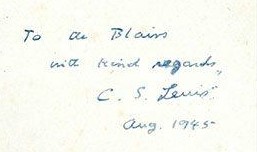 To de Blairs
with kind regards,
C. S. Lewis.
Aug. 1945